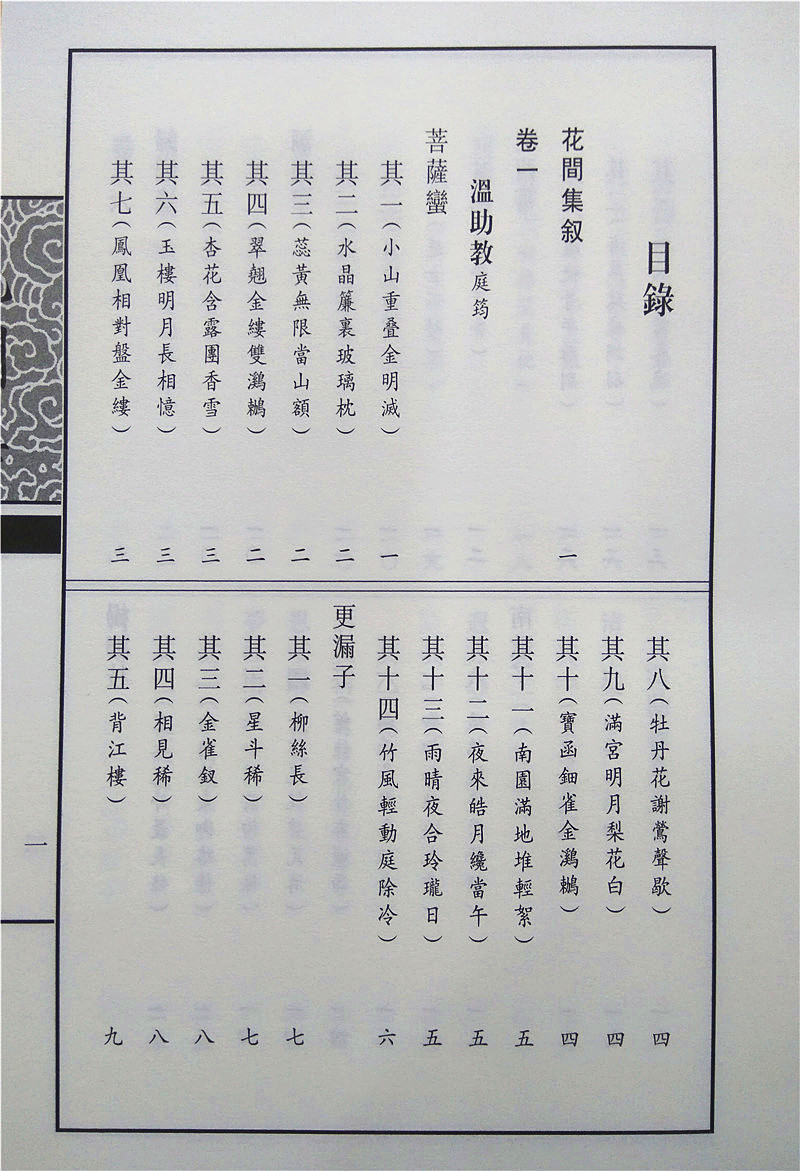 目錄
花間集叙 一
卷一
溫助教庭筠
菩薩蠻
其一（小山重叠金明滅） 一
其二（水晶簾裏玻璃枕） 二
其三（蕊黃無限當山額） 二
其四（翠翹金縷雙鸂鶒） 二
其五（杏花含露團香雪） 三
其六（玉樓明月長相憶） 三
其七（鳳凰相對盤金縷） 三
其八（牡丹花謝鶯聲歇） 四
其九（滿宮明月梨花白） 四
其十（寶函鈿雀金鸂鶒） 四
其十一（南園滿地堆輕絮） 五
其十二（夜來皓月纔當午） 五
其十三（雨晴夜合玲瓏日） 五
其十四（竹風輕動庭除冷） 六
更漏子
其一（柳絲長） 七
其二（星斗稀） 七
其三（金雀釵） 八
其四（相見稀） 八
其五（背江樓） 九
一